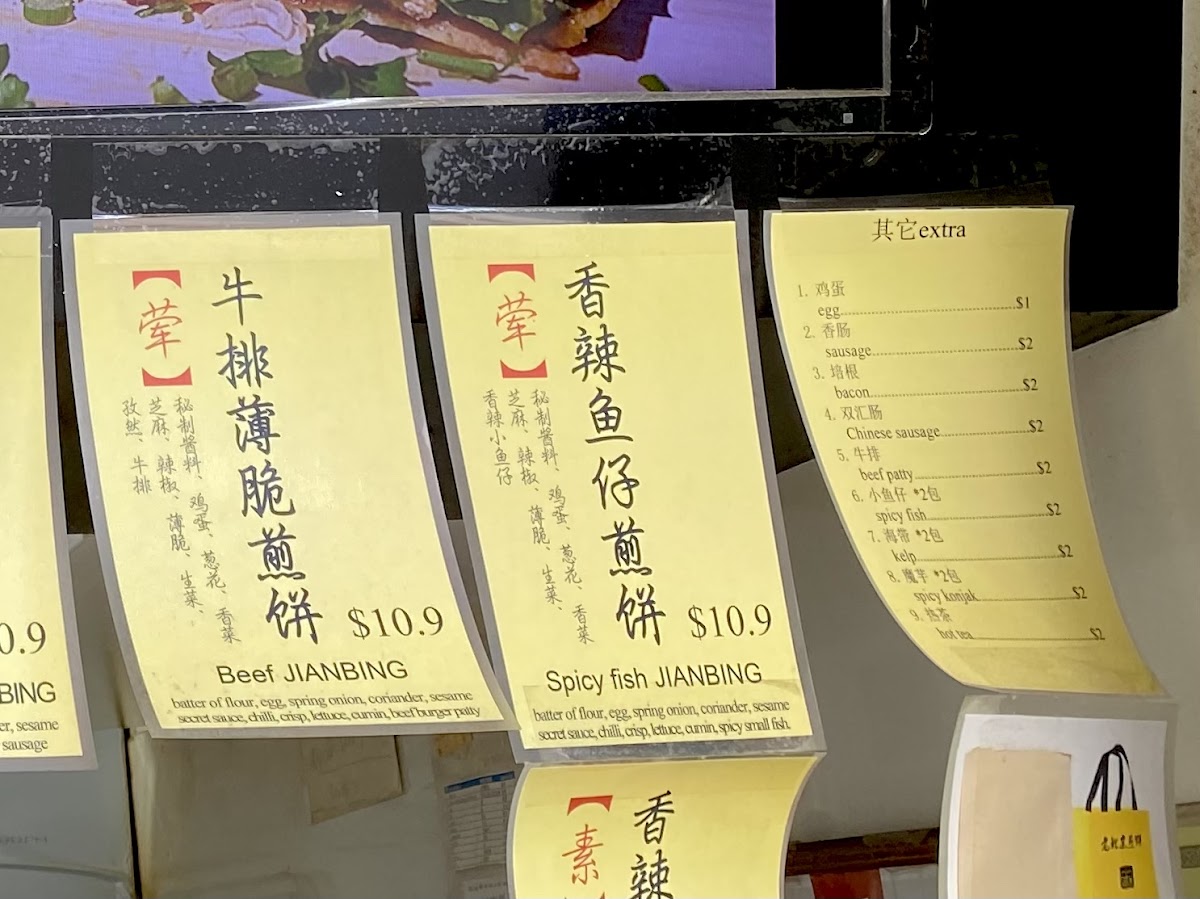 0.9
BING
er, sesame
sausage
【荤】
牛排薄脆煎饼
秘制酱料、鸡蛋、葱花、香菜
芝麻、辣椒、薄脆、生菜、
孜然、牛排
$10.9
Beef JIANBING
batter of flour, egg, spring onion, coriander, sesame
secret sauce, chilli, crisp, lettuce, cumin, beef burger patty
【荤】
香辣鱼仔煎饼
秘制酱料、鸡蛋、葱花、香菜
芝麻、辣椒、薄脆、生菜、
香辣小鱼仔
$10.9
Spicy fish JIANBING
batter of flour, egg, spring onion, coriander, sesame
secret sauce, chilli, crisp, lettuce, cumin, spicy small fish.
其它extra
1. 鸡蛋
egg.......$1
2. 香肠
sausage.......$2
3. 培根
bacon.......$2
4. 双汇肠
Chinese sausage.......$2
5. 牛排
beef patty.......$2
6. 小鱼仔 *2包
spicy fish.......$2
7. 海带 *2包
kelp.......$2
8. 魔芋 *2包
spicy konjak.......$2
9. 热茶
hot tea.......$2
【素
香辣